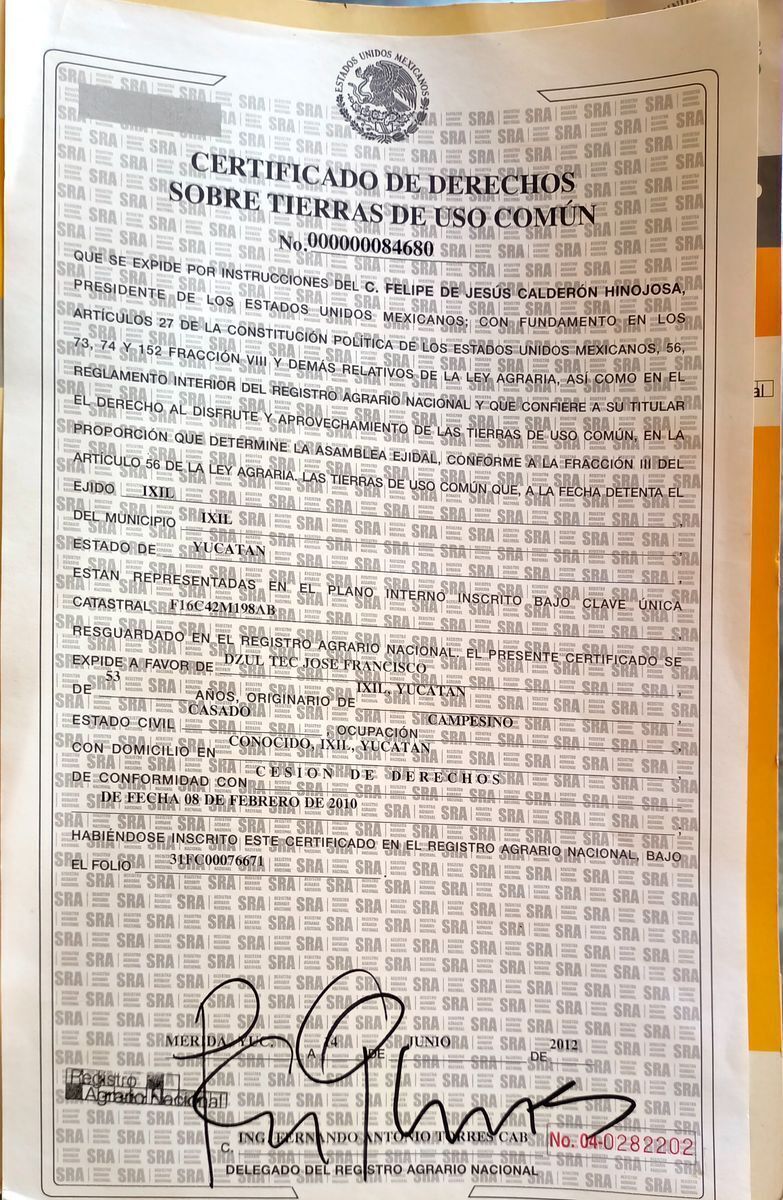 ESTADOS UNIDOS MEXICANOS
CERTIFICADO DE DERECHOS
SOBRE TIERRAS DE USO COMÚN
No.000000084680
QUE SE EXPIDE POR INSTRUCCIONES DEL C. FELIPE DE JESÚS CALDERÓN HINOJOSA,
PRESIDENTE DE LOS ESTADOS UNIDOS MEXICANOS; CON FUNDAMENTO EN LOS
ARTÍCULOS 27 DE LA CONSTITUCIÓN POLÍTICA DE LOS ESTADOS UNIDOS MEXICANOS, 56,
73, 74 Y 152 FRACCIÓN VIII Y DEMÁS RELATIVOS DE LA LEY AGRARIA, ASÍ COMO EN EL
REGLAMENTO INTERIOR DEL REGISTRO AGRARIO NACIONAL Y QUE CONFIERE A SU TITULAR
EL DERECHO AL DISFRUTE Y APROVECHAMIENTO DE LAS TIERRAS DE USO COMÚN, EN LA
PROPORCIÓN QUE DETERMINE LA ASAMBLEA EJIDAL, CONFORME A LA FRACCIÓN III DEL
ARTÍCULO 56 DE LA LEY AGRARIA. LAS TIERRAS DE USO COMÚN QUE, A LA FECHA DETENTA EL
EJIDO IXIL
DEL MUNICIPIO IXIL,
ESTADO DE YUCATAN,
ESTÁN REPRESENTADAS EN EL PLANO INTERNO INSCRITO BAJO CLAVE ÚNICA
CATASTRAL F16C42M198AB,
RESGUARDADO EN EL REGISTRO AGRARIO NACIONAL. EL PRESENTE CERTIFICADO SE
EXPIDE A FAVOR DE DZUL TEC JOSE FRANCISCO,
DE 53 AÑOS, ORIGINARIO DE IXIL, YUCATAN,
ESTADO CIVIL CASADO, OCUPACIÓN CAMPESINO,
CON DOMICILIO EN CONOCIDO, IXIL, YUCATAN,
DE CONFORMIDAD CON CESION DE DERECHOS
DE FECHA 08 DE FEBRERO DE 2010,
HABIÉNDOSE INSCRITO ESTE CERTIFICADO EN EL REGISTRO AGRARIO NACIONAL, BAJO
EL FOLIO 31FC00076671.
MERIDA, YUC. A 4 DE JUNIO DE 2012
Registro
Agrario Nacional
C. ING. FERNANDO ANTONIO TORRES CAB
No. 04-0282202
DELEGADO DEL REGISTRO AGRARIO NACIONAL